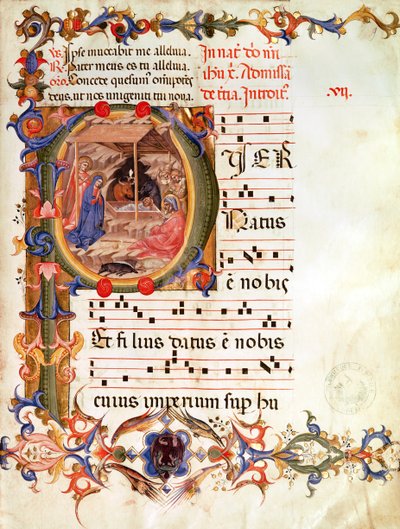 Vs. Ipse inuocabit me alleluia.
R. Pater meus es tu alleluia.
oro. Concede quesumus omnipotens
deus ut nos unigeniti tui noua
In nat. dñi nri
ihu x̄. Ad missā
de tcia. Introit.
.VII.
PUER
Natus
ē nobis
Et filius datus ē nobis
cuius imperium sup hu